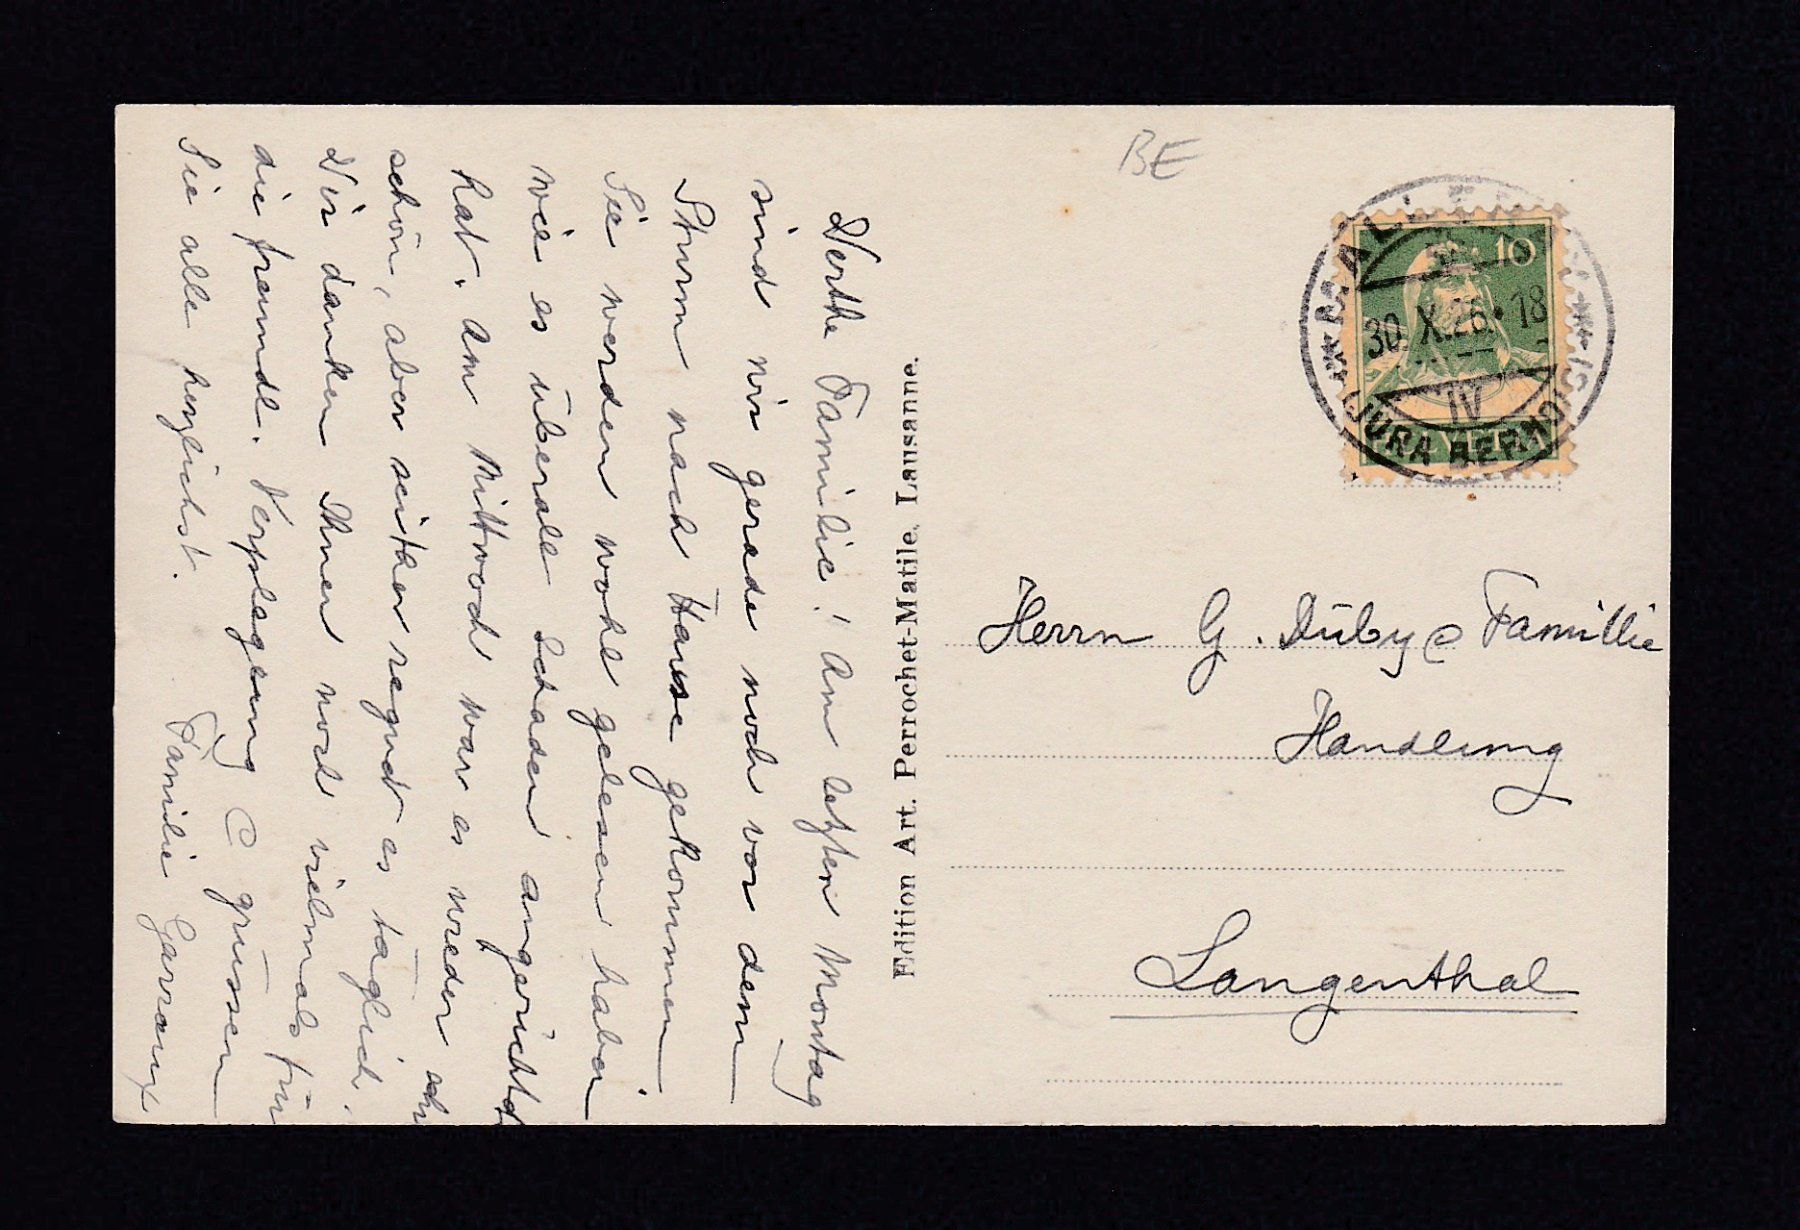 Werthe Familie! Am letzten Montag
sind wir gerade noch vor dem
Sturm nach Hause gekommen
Sie werden wohl gelesen haben
wie es überall Schaden angerichtet
hat. Am Mittwoch war es wieder sehr
schön, aber seither regnet es täglich.
Wir danken Ihnen noch vielmals für
die freundl. Verpflegung & grüssen
Sie alle herzlichst.
Familie
Edition Art. Perrochet-Matile, Lausanne.
BE
10
30. X. 26. 18
IV
(JURA BERNOIS)
HELVETIA
Herrn G. Düby & Famillie
Handlung
Langenthal